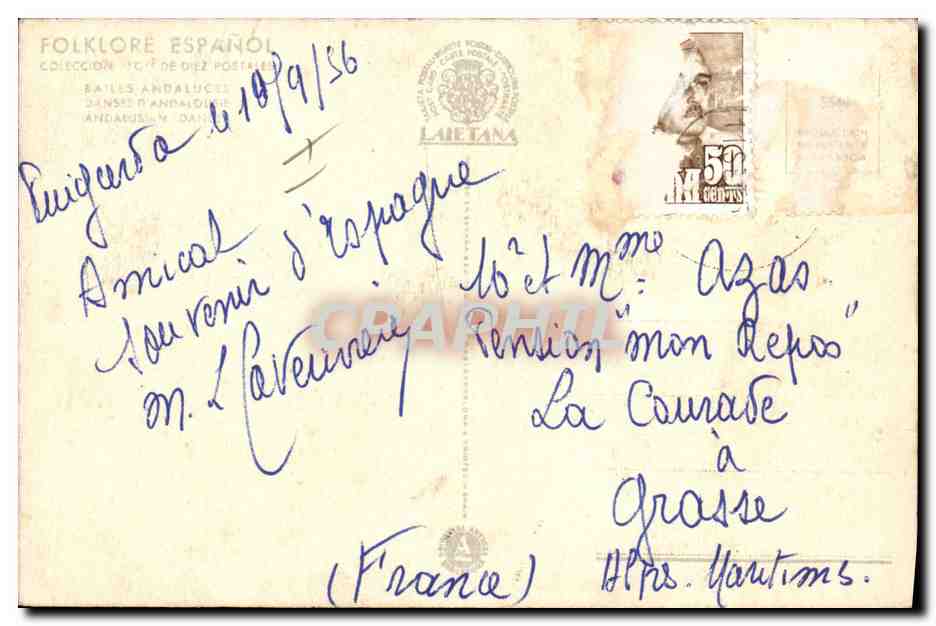 FOLKLORE ESPAÑOL
COLECCION DE DIEZ POSTALES
BAILES ANDALUCES
DANSES D'ANDALOUSIE
ANDALUSIAN
LAIETANA
50
CENTS
Puigcerda le 10/9/56
Amical
souvenir d'Espagne
M.
Mr et Mme Azas
Pension "mon Repos"
La Courade
à
Grasse
Alpes. Maritimes.
(France)
CPAPHIL